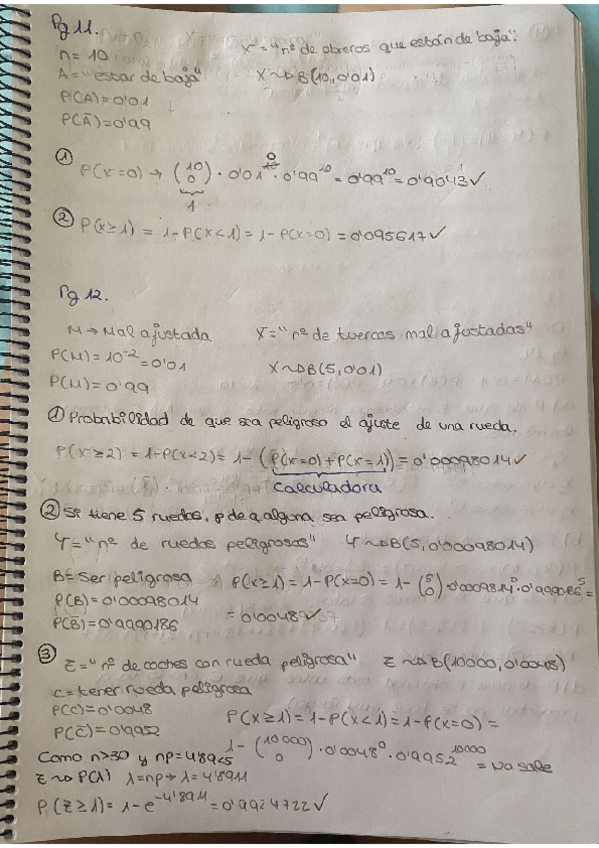 Pg 11.
n = 10
X = "nº de obreros que están de baja".
A = "estar de baja"
X ~> B(10, 0'01)
P(A) = 0'01
P(Ā) = 0'99
① P(x=0) → (10 0) · 0'01⁰ · 0'99¹⁰ = 0'99¹⁰ = 0'9043 ✓
1
② P(x≥1) = 1-P(x<1) = 1-P(x=0) = 0'095617 ✓
Pg 12.
M → Mal ajustada
X = "nº de tuercas mal ajustadas"
P(M) = 10⁻² = 0'01
X ~> B(5, 0'01)
P(M) = 0'99
① Probabilidad de que sea peligroso el ajuste de una rueda.
P(x≥2) = 1-P(x<2) = 1 - (P(x=0) + P(x=1)) = 0'00098014 ✓
Calculadora
② Se tiene 5 ruedas, p de q alguna sea peligrosa.
Y = "nº de ruedas peligrosas" Y ~> B(5, 0'00098014)
B = Ser peligrosa P(x≥1) = 1-P(x=0) = 1 - (5 0) · 0'0009814⁰ · 0'999086⁵ =
P(B) = 0'00098014
= 0'0048 ✓
P(B̄) = 0'9990186
③ Z = "nº de coches con rueda peligrosa" Z ~> B(10000, 0'0048)
C = tener rueda peligrosa
P(C) = 0'0048
P(x≥1) = 1-P(x<1) = 1-P(x=0) =
P(C̄) = 0'9952
1 - (10000 0) · 0'0048⁰ · 0'9952¹⁰⁰⁰⁰ = No sale
Como n>30 y np = 4'89<5
Z ~> P(λ) λ = np → λ = 4'8911
P(Z≥1) = 1 - e^-4'8911 = 0'9924722 ✓